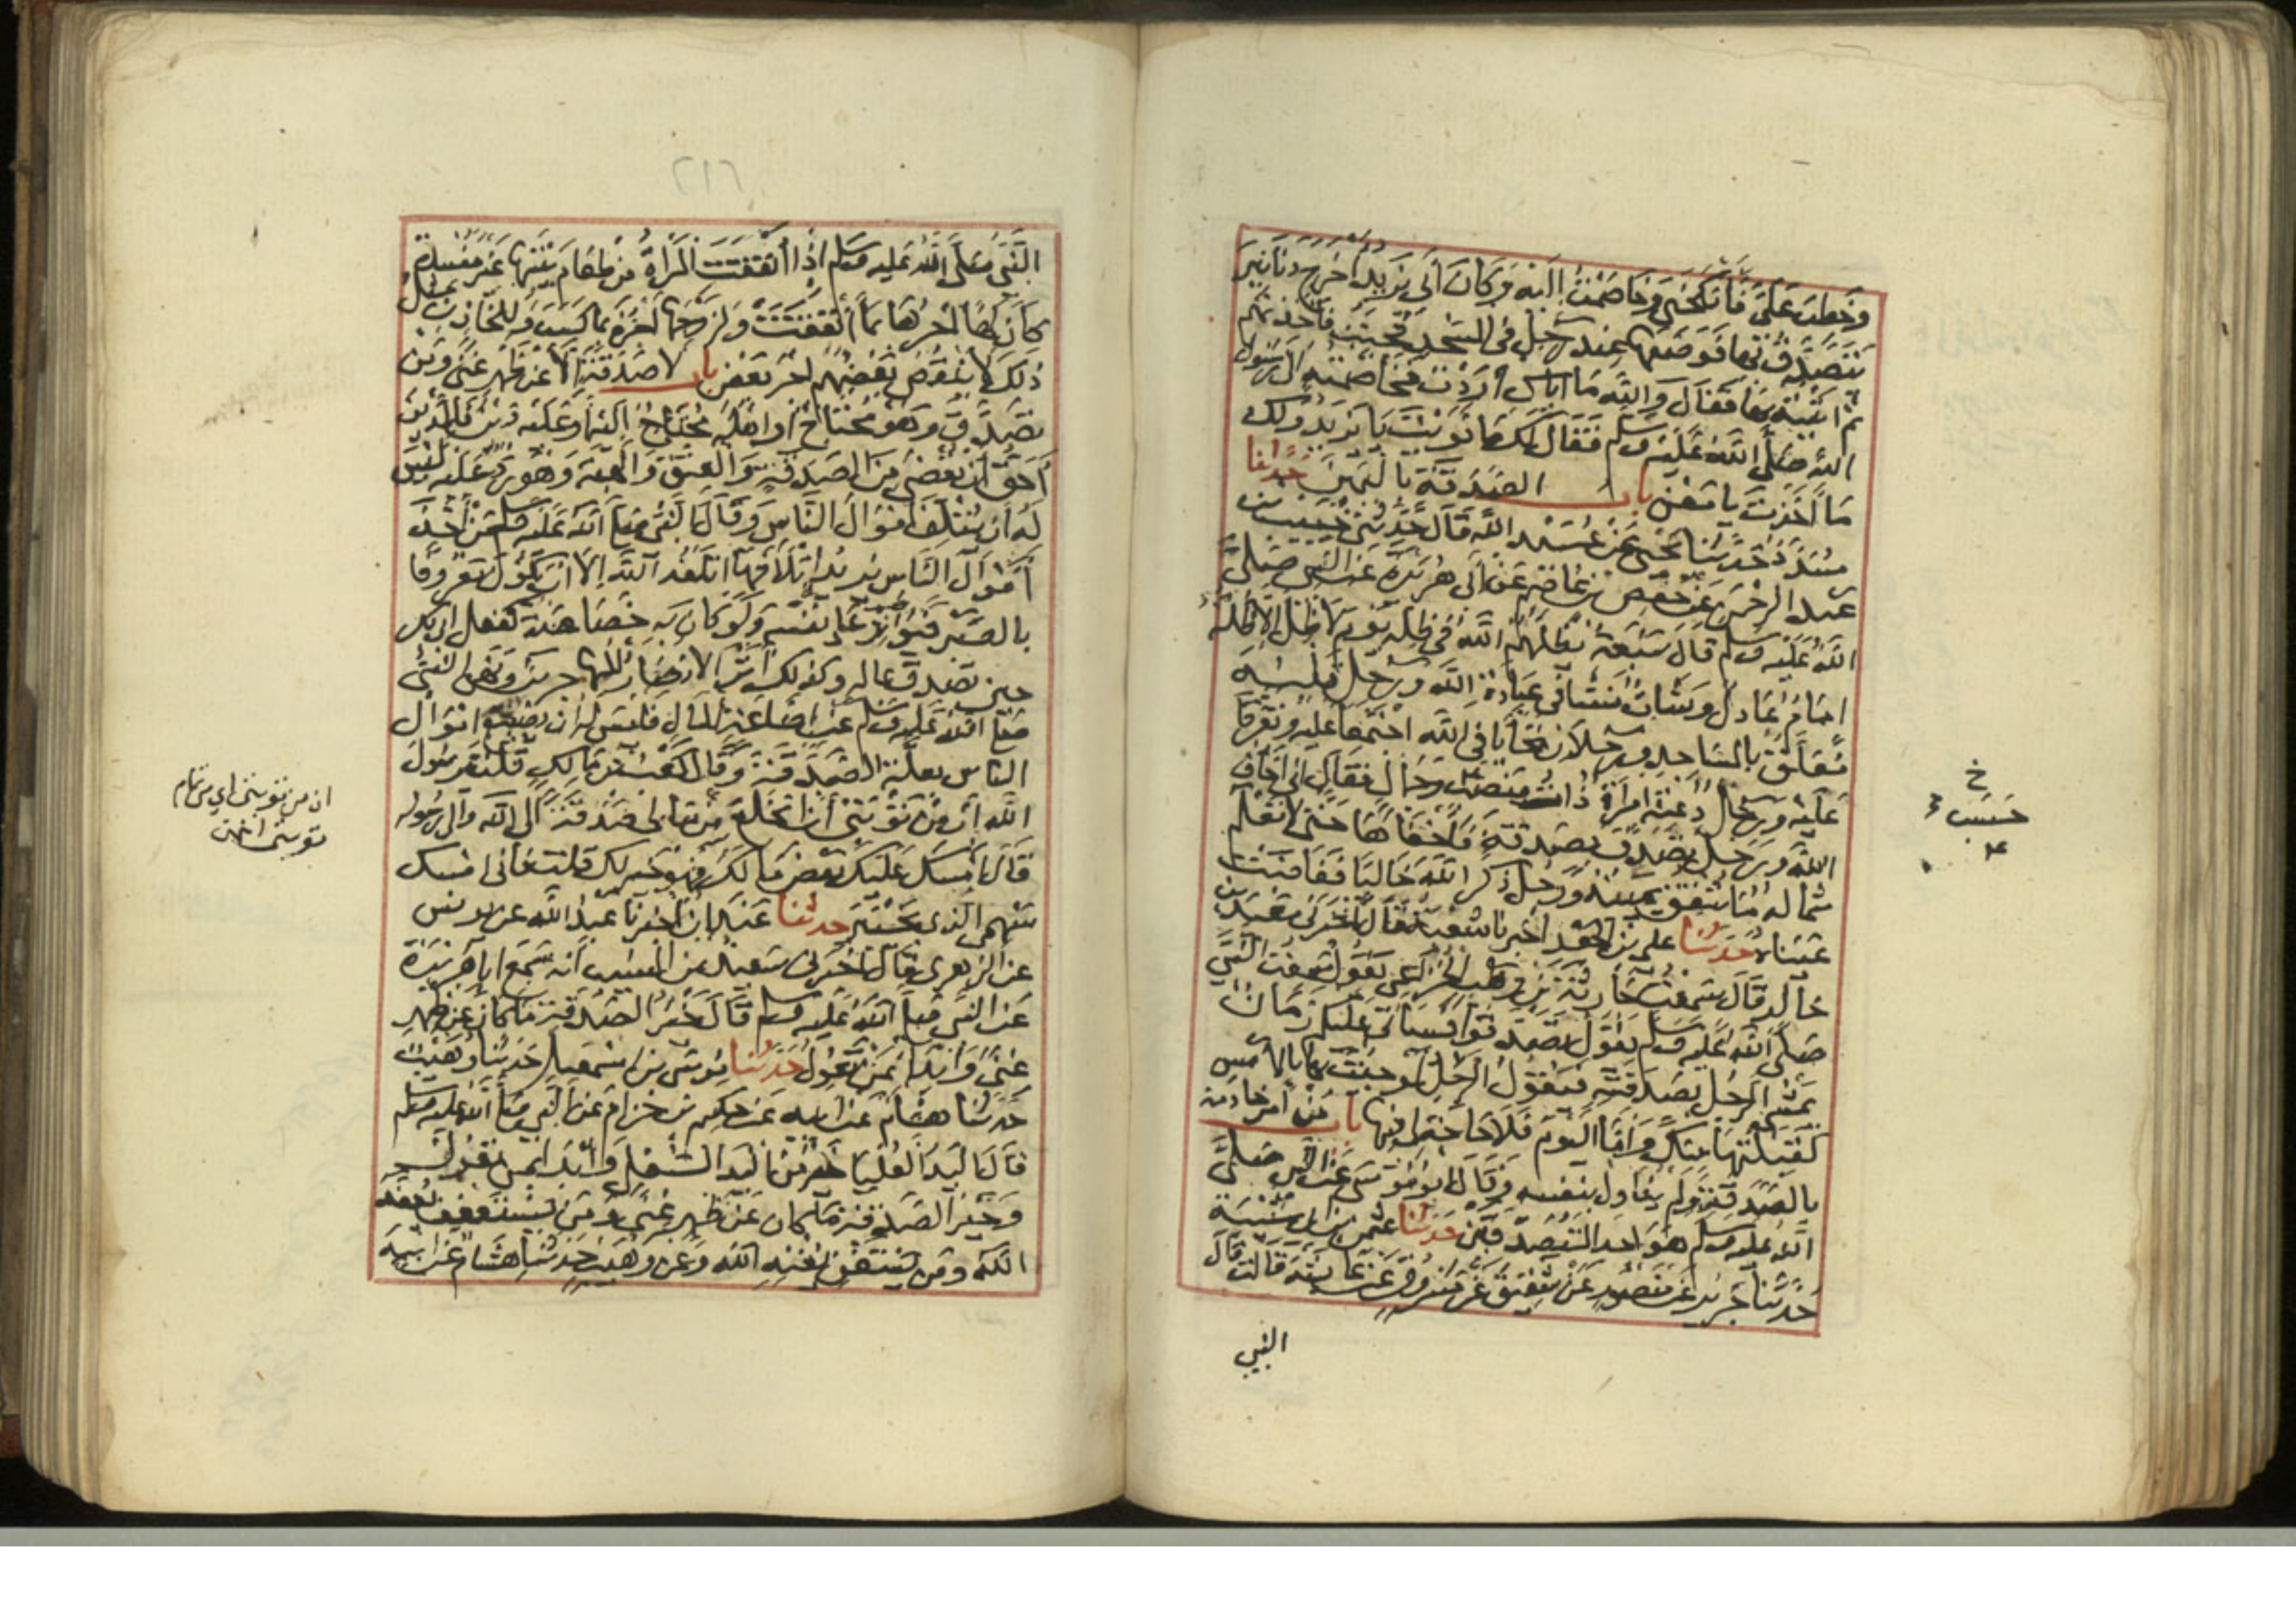 وخطب علي فانكحني وخاصمت اليه وكان ابي يزيد اخرج دنانير
يتصدق بها فوضعها عند رجل في المسجد فجئت فاخذتها
ثم اتيته بها فقال والله ما اياك اردت فخاصمته الى رسول
الله صلى الله عليه وسلم فقال لك ما نويت يا يزيد ولك
ما اخذت يا معن باب الصدقة باليمين حدثنا
مسدد حدثنا يحيى عن عبيد الله قال حدثني خبيب بن
عبد الرحمن عن حفص بن عاصم عن ابي هريرة عن النبي صلى
الله عليه وسلم قال سبعة يظلهم الله في ظله يوم لا ظل الا ظله
امام عادل وشاب نشا في عبادة الله ورجل قلبه
معلق بالمساجد ورجلان تحابا في الله اجتمعا عليه وتفرقا
عليه ورجل دعته امراة ذات منصب وجمال فقال اني اخاف
الله ورجل تصدق بصدقة فاخفاها حتى لا تعلم
شماله ما تنفق يمينه ورجل ذكر الله خاليا ففاضت
عيناه حدثنا علي بن الجعد اخبرنا شعبة قال اخبرني معبد بن
خالد قال سمعت حارثة بن وهب الخزاعي يقول سمعت النبي
صلى الله عليه وسلم يقول تصدقوا فسياتي عليكم زمان
يمشي الرجل بصدقته فيقول الرجل لو جئت بها بالامس
لقبلتها منك واما اليوم فلا حاجة لي فيها باب من امر خادمه
بالصدقة ولم يناول بنفسه وقال ابو موسى عن النبي صلى
الله عليه وسلم هو احد المتصدقين حدثنا عثمن بن ابي شيبة
حدثنا جرير عن منصور عن شقيق عن مسروق عن عايشة قالت قال
النبي
خ
حسب
٢١٦
النبي صلى الله عليه وسلم اذا انفقت المراة من طعام بيتها غير مفسدة
كان لها اجرها بما انفقت ولزوجها اجره بما كسب وللخازن مثل
ذلك لا ينقص بعضهم اجر بعض باب لا صدقة الا عن ظهر غنى ومن
تصدق وهو محتاج او اهله محتاج اليه او عليه دين فالدين
احق ان يقضى من الصدقة والعتق والهبة وهو رد عليه ليس
له ان يتلف اموال الناس وقال النبي صلى الله عليه وسلم من اخذ
اموال الناس يريد اتلافها اتلفه الله الا ان يكون معروفا
بالصبر فيؤثر على نفسه ولو كان به خصاصة كفعل ابي بكر
حين تصدق بماله وكذلك اثر الانصار المهاجرين ونهى النبي
صلى الله عليه وسلم عن اضاعة المال فليس له ان يضيع اموال
الناس بعلة الصدقة وقال كعب بن مالك قلت يا رسول
الله ان من توبتي ان انخلع من مالي صدقة الى الله والى رسوله
قال امسك عليك بعض مالك فهو خير لك قلت فاني امسك
سهمي الذي بخيبر حدثنا عبدان اخبرنا عبد الله عن يونس
عن الزهري قال اخبرني سعيد بن المسيب انه سمع ابا هريرة
عن النبي صلى الله عليه وسلم قال خير الصدقة ما كان عن ظهر
غنى وابدا بمن تعول حدثنا موسى بن اسمعيل حدثنا وهيب
حدثنا هشام عن ابيه عن حكيم بن حزام عن النبي صلى الله عليه وسلم
قال اليد العليا خير من اليد السفلى وابدا بمن تعول
وخير الصدقة ما كان عن ظهر غنى ومن يستعفف يعفه
الله ومن يستغن يغنه الله وعن وهيب حدثنا هشام عن ابيه
ان من توبتي اي من تمام
توبتي